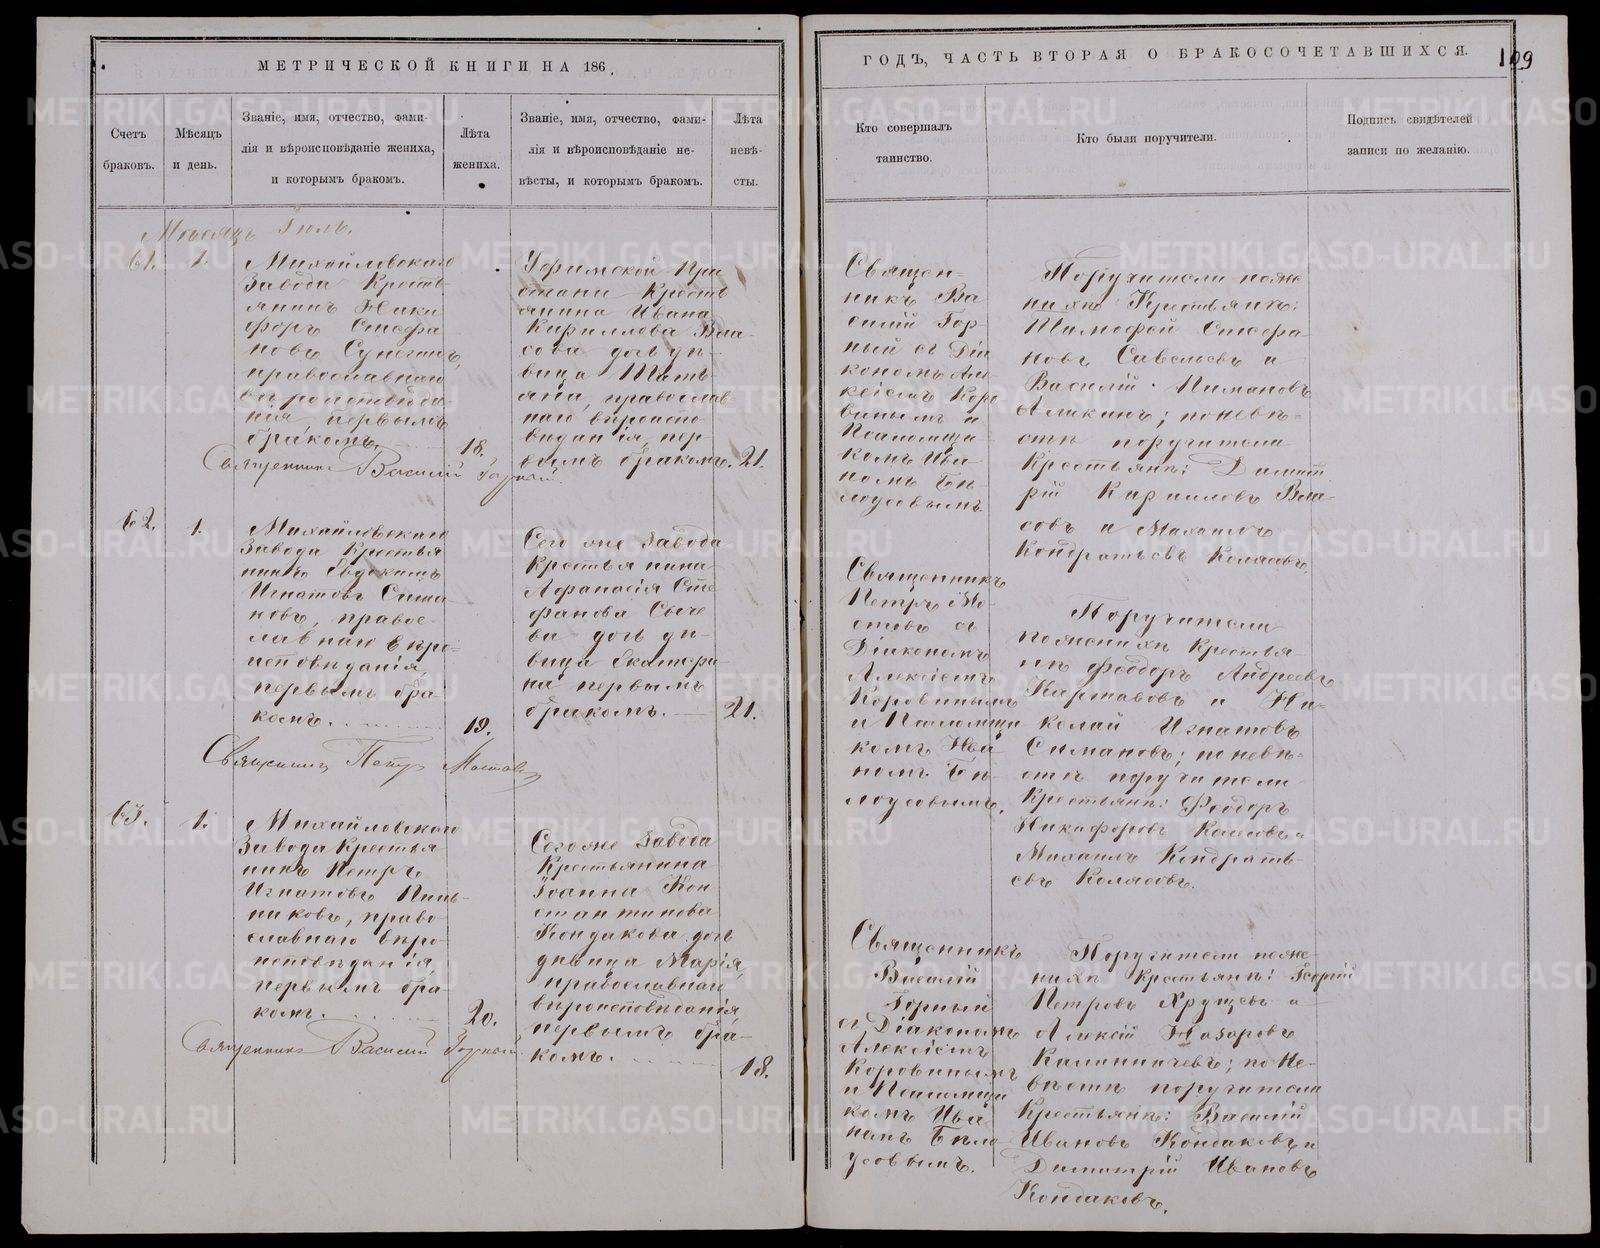 МЕТРИЧЕСКОЙ КНИГИ НА 186
Счетъ
браковъ.
Мѣсяцъ
и день.
Званіе, имя, отчество, фами-
лія и вѣроисповѣданіе жениха,
и которымъ бракомъ.
Лѣта
жениха.
Званіе, имя, отчество, фами-
лія и вѣроисповѣданіе не-
вѣсты, и которымъ бракомъ.
Лѣта
невѣ-
сты.
Мѣсяцъ Іюль.
61.
1.
Михайловскаго
Завода Кресть
янинъ Ники
форъ Стефа
новъ
православнаго
вѣроисповѣда-
нія, первымъ
бракомъ.
18.
Уфимской При
стани Кресть
янина Ивана
Кириллова Вла-
сова дочь дѣ-
вица Тать
яна, православ
наго вѣроиспо-
вѣданія, пер
вымъ бракомъ.
21.
Священникъ Василій Горный
62.
1.
Михайловскаго
Завода Крестья
нинъ Евдокимъ
Игнатовъ Сима
новъ, правос-
лавнаго вѣро-
исповѣданія,
первымъ бра-
комъ.
19.
Сего же Завода
Крестьянина
Афанасія Сте
фанова Сыче
ва дочь дѣ-
вица Екатери-
на первымъ
бракомъ.
21.
Священникъ Петръ Мостовъ
63.
1.
Михайловскаго
Завода Крестья-
нинъ Петръ
Игнатовъ Пинь-
никовъ, право-
славнаго вѣро-
исповѣданія,
первымъ бра
комъ.
20.
Сегоже Завода
Крестьянина
Іоанна Кон
стантинова
Кондакова дочь
дѣвица Марія,
православнаго
вѣроисповѣданія,
первымъ бра-
комъ.
18.
Священникъ Василій Горный
ГОДЪ, ЧАСТЬ ВТОРАЯ О БРАКОСОЧЕТАВШИХСЯ.
109
Кто совершалъ
таинство.
Кто были поручители.
Подпись свидѣтелей
записи по желанію.
Священ-
никъ Ва
силій Гор-
ный съ Діа
кономъ Але-
ксіемъ Коро
винымъ и
Псаломщи
комъ Ива-
номъ Бѣ-
лоусовымъ.
Поручители по же
нихѣ Крестьяне:
Тимофей Стефа
новъ Савельевъ и
Василій Пимановъ
Аликинъ; по невѣ-
стѣ поручители
Крестьяне: Димит
рій Кирилловъ Вла-
совъ и Михаилъ
Кондратьевъ Колясовъ.
Священникъ
Петръ Мо-
стовъ съ
Діакономъ
Алексіемъ
Коровинымъ
и Псаломщи
комъ Ива
номъ Бѣ-
лоусовымъ.
Поручители
по женихѣ Крестья-
не Феодоръ Андреевъ
Картавовъ и Ни-
колай Игнатовъ
Симановъ; по невѣ-
стѣ поручители
Крестьяне: Феодоръ
Никифоровъ и
Михаилъ Кондрать-
евъ Колясовъ.
Священникъ
Василій
Горный
съ Діакономъ
Алексіемъ
Коровинымъ
и Псаломщи
комъ Ива
номъ Бѣло
усовымъ.
Поручители по же-
нихѣ Крестьяне: Георгій
Петровъ Хрущевъ и
Алексій Назаровъ
Калиничевъ; по не-
вѣстѣ поручители
Крестьяне: Василій
Ивановъ Кондаковъ и
Димитрій Ивановъ
Кондаковъ.
METRIKI.GASO-URAL.RU